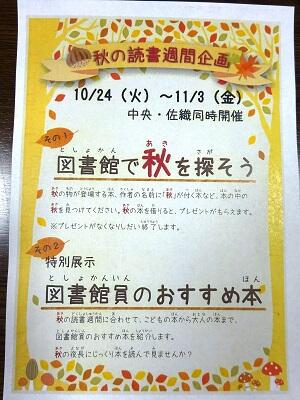 秋の読書週間企画
10/24（火）～11/3（金）
中央・佐織同時開催
その1
としょかん あき さが
図書館で秋を探そう
秋の物が登場する本、作者の名前に「秋」が付く本など、本の中の
秋を見つけてください。秋の本を借りると、プレゼントがもらえます。
※プレゼントがなくなりしだい終了します。
その2
特別展示
としょかんいん ほん
図書館員のおすすめ本
秋の読書週間に合わせて、こどもの本から大人の本まで、
図書館員のおすすめ本を紹介します。
秋の夜長にじっくり本を読んで見ませんか？